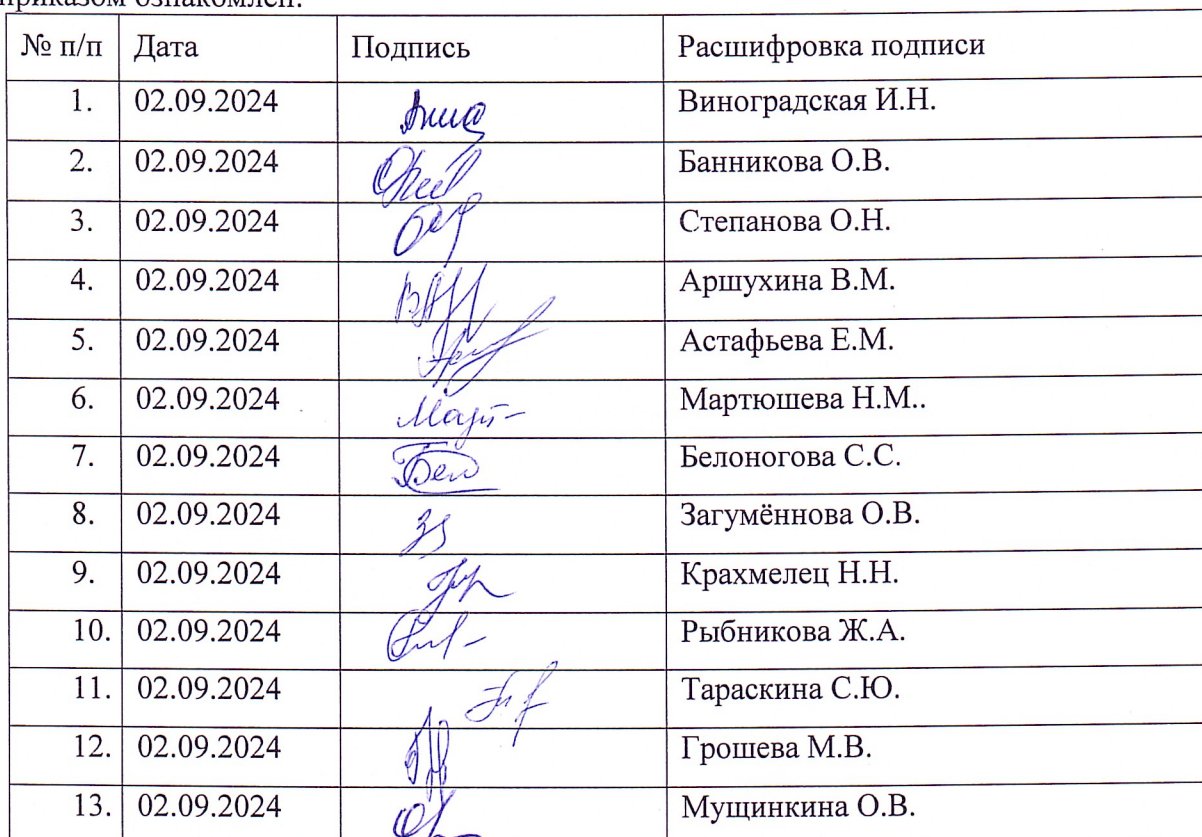 приказом ознакомлен:
№ п/п Дата Подпись Расшифровка подписи
1. 02.09.2024 Виноградская И.Н.
2. 02.09.2024 Банникова О.В.
3. 02.09.2024 Степанова О.Н.
4. 02.09.2024 Аршухина В.М.
5. 02.09.2024 Астафьева Е.М.
6. 02.09.2024 Мартюшева Н.М..
7. 02.09.2024 Бел Белоногова С.С.
8. 02.09.2024 Загумённова О.В.
9. 02.09.2024 Крахмелец Н.Н.
10. 02.09.2024 Рыбникова Ж.А.
11. 02.09.2024 Тараскина С.Ю.
12. 02.09.2024 Грошева М.В.
13. 02.09.2024 Мущинкина О.В.